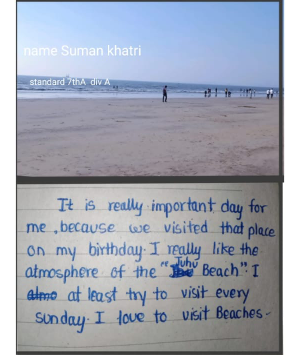 name Suman khatri
standard 7thA div A
It is really important day for
me, because we visited that place
on my birthday. I really like the
atmosphere of the "Juhu Beach". I
at least try to visit every
sunday. I love to visit Beaches-